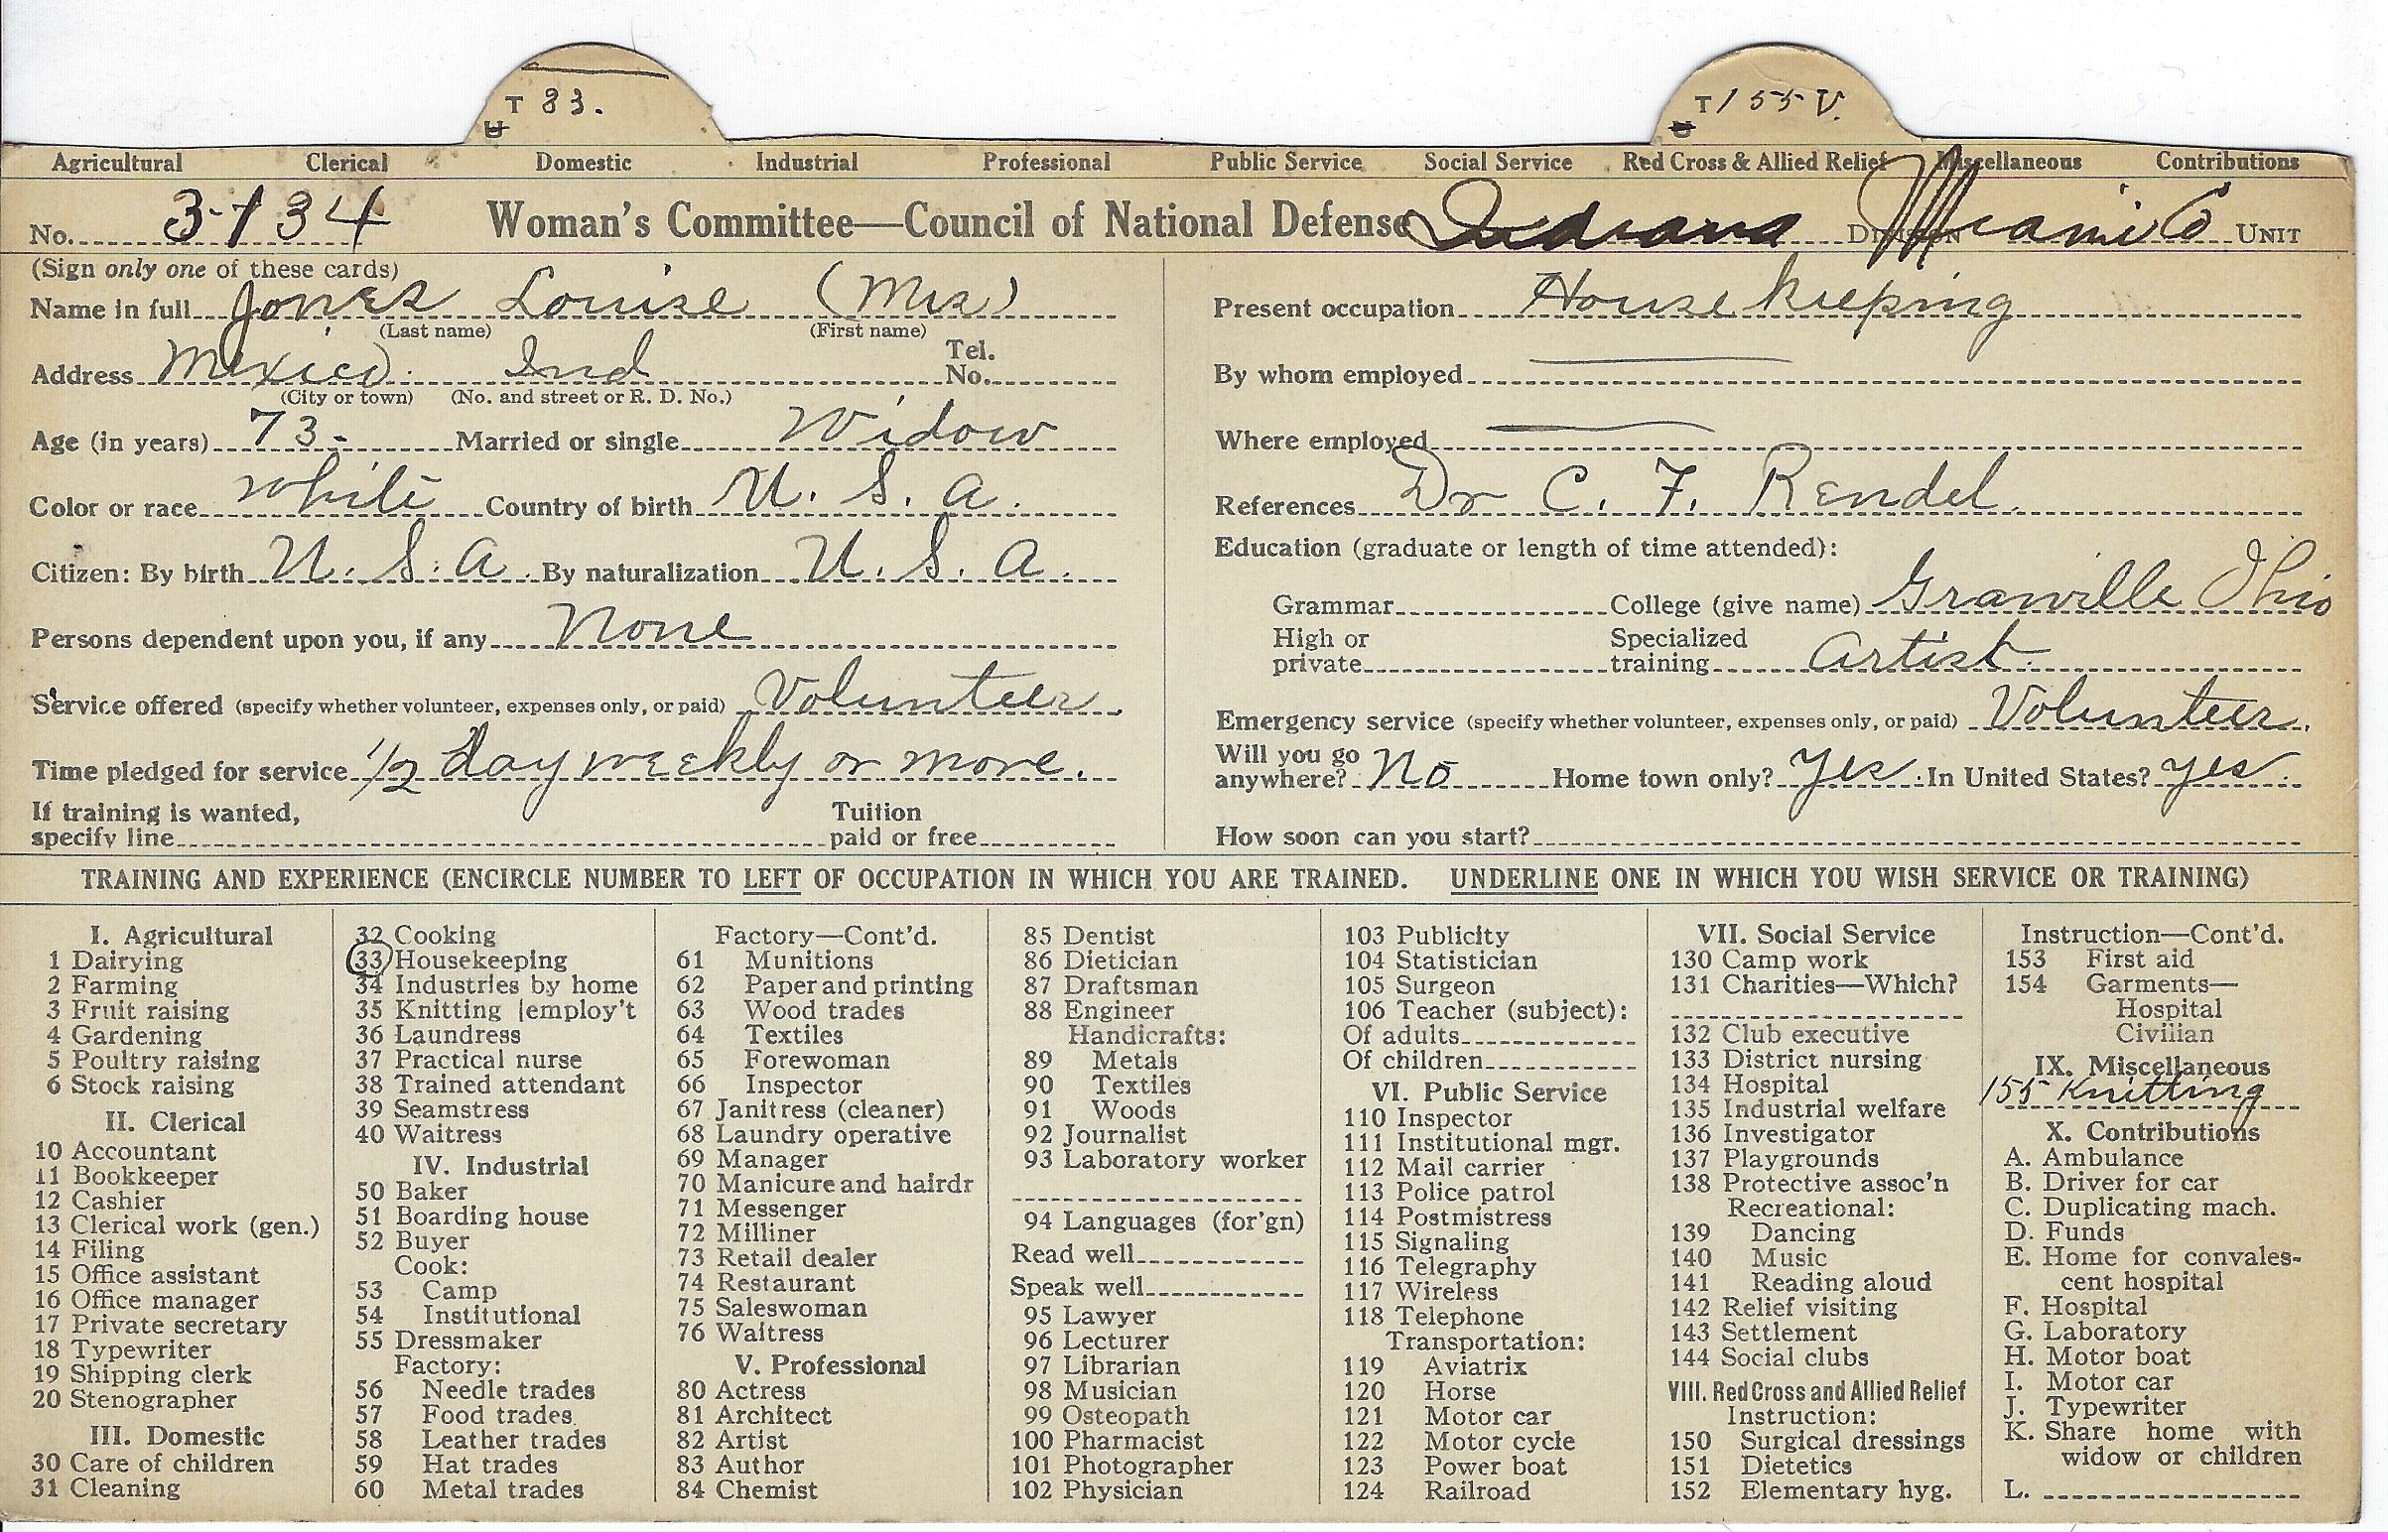 T 83.
U
T 155 V.
U
Agricultural Clerical Domestic Industrial Professional Public Service Social Service Red Cross & Allied Relief Miscellaneous Contributions
No. 3-134 Woman's Committee—Council of National Defense Indiana Division Miami Co Unit
(Sign only one of these cards)
Name in full Jones Louise (Mrs)
(Last name) (First name)
Address Mexico. Ind Tel. No.
(City or town) (No. and street or R. D. No.)
Age (in years) 73- Married or single Widow
Color or race white Country of birth U. S. A.
Citizen: By birth U. S. A. By naturalization U. S. A.
Persons dependent upon you, if any None
Service offered (specify whether volunteer, expenses only, or paid) Volunteer.
Time pledged for service 1/2 day weekly or more.
If training is wanted,
specify line
Tuition
paid or free
Present occupation House keeping
By whom employed
Where employed
References Dr C. F. Rendel.
Education (graduate or length of time attended):
Grammar College (give name) Granville Ohio
High or
private
Specialized
training Artist.
Emergency service (specify whether volunteer, expenses only, or paid) Volunteer.
Will you go
anywhere? No Home town only? Yes. In United States? yes.
How soon can you start?
TRAINING AND EXPERIENCE (ENCIRCLE NUMBER TO LEFT OF OCCUPATION IN WHICH YOU ARE TRAINED. UNDERLINE ONE IN WHICH YOU WISH SERVICE OR TRAINING)
I. Agricultural
1 Dairying
2 Farming
3 Fruit raising
4 Gardening
5 Poultry raising
6 Stock raising
II. Clerical
10 Accountant
11 Bookkeeper
12 Cashier
13 Clerical work (gen.)
14 Filing
15 Office assistant
16 Office manager
17 Private secretary
18 Typewriter
19 Shipping clerk
20 Stenographer
III. Domestic
30 Care of children
31 Cleaning
32 Cooking
33 Housekeeping
34 Industries by home
35 Knitting [employ't
36 Laundress
37 Practical nurse
38 Trained attendant
39 Seamstress
40 Waitress
IV. Industrial
50 Baker
51 Boarding house
52 Buyer
Cook:
53 Camp
54 Institutional
55 Dressmaker
Factory:
56 Needle trades
57 Food trades
58 Leather trades
59 Hat trades
60 Metal trades
Factory—Cont'd.
61 Munitions
62 Paper and printing
63 Wood trades
64 Textiles
65 Forewoman
66 Inspector
67 Janitress (cleaner)
68 Laundry operative
69 Manager
70 Manicure and hairdr
71 Messenger
72 Milliner
73 Retail dealer
74 Restaurant
75 Saleswoman
76 Waitress
V. Professional
80 Actress
81 Architect
82 Artist
83 Author
84 Chemist
85 Dentist
86 Dietician
87 Draftsman
88 Engineer
Handicrafts:
89 Metals
90 Textiles
91 Woods
92 Journalist
93 Laboratory worker
94 Languages (for'gn)
Read well
Speak well
95 Lawyer
96 Lecturer
97 Librarian
98 Musician
99 Osteopath
100 Pharmacist
101 Photographer
102 Physician
103 Publicity
104 Statistician
105 Surgeon
106 Teacher (subject):
Of adults
Of children
VI. Public Service
110 Inspector
111 Institutional mgr.
112 Mail carrier
113 Police patrol
114 Postmistress
115 Signaling
116 Telegraphy
117 Wireless
118 Telephone
Transportation:
119 Aviatrix
120 Horse
121 Motor car
122 Motor cycle
123 Power boat
124 Railroad
VII. Social Service
130 Camp work
131 Charities—Which?
132 Club executive
133 District nursing
134 Hospital
135 Industrial welfare
136 Investigator
137 Playgrounds
138 Protective assoc'n
Recreational:
139 Dancing
140 Music
141 Reading aloud
142 Relief visiting
143 Settlement
144 Social clubs
VIII. Red Cross and Allied Relief
Instruction:
150 Surgical dressings
151 Dietetics
152 Elementary hyg.
Instruction—Cont'd.
153 First aid
154 Garments—
Hospital
Civilian
IX. Miscellaneous
155 Knitting
X. Contributions
A. Ambulance
B. Driver for car
C. Duplicating mach.
D. Funds
E. Home for convales-
cent hospital
F. Hospital
G. Laboratory
H. Motor boat
I. Motor car
J. Typewriter
K. Share home with
widow or children
L.